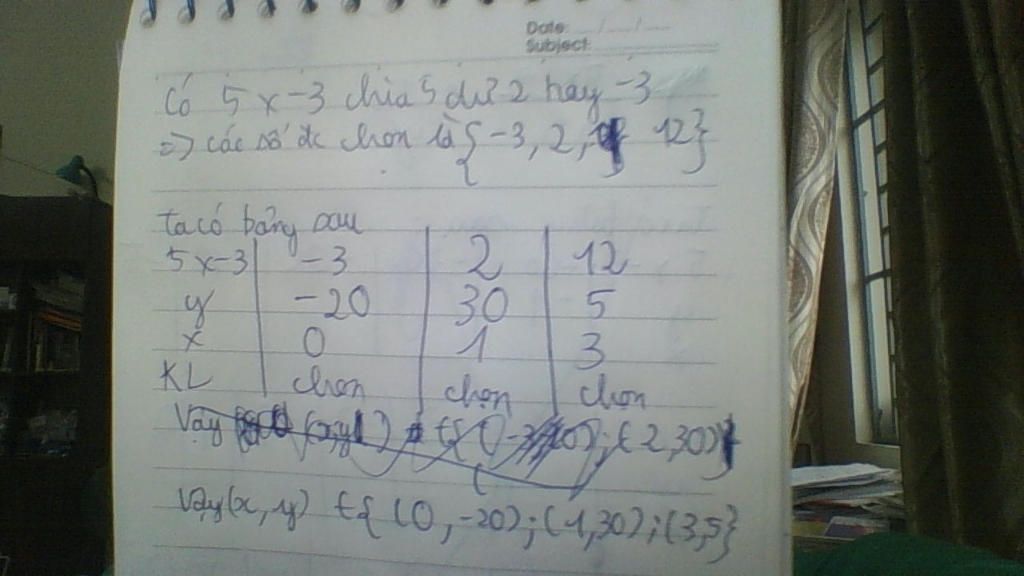 Date: / /
Subject:
Có 5x-3 chia 5 dư 2 hay -3
=> các số đc chọn là {-3, 2, 12}
ta có bảng sau
5x-3 -3 2 12
y -20 30 5
x 0 1 3
KL chọn chọn chọn
Vậy (x,y) ; (2,30)
Vậy (x, y) ∈ { (0, -20) ; (1,30) ; (3,5}